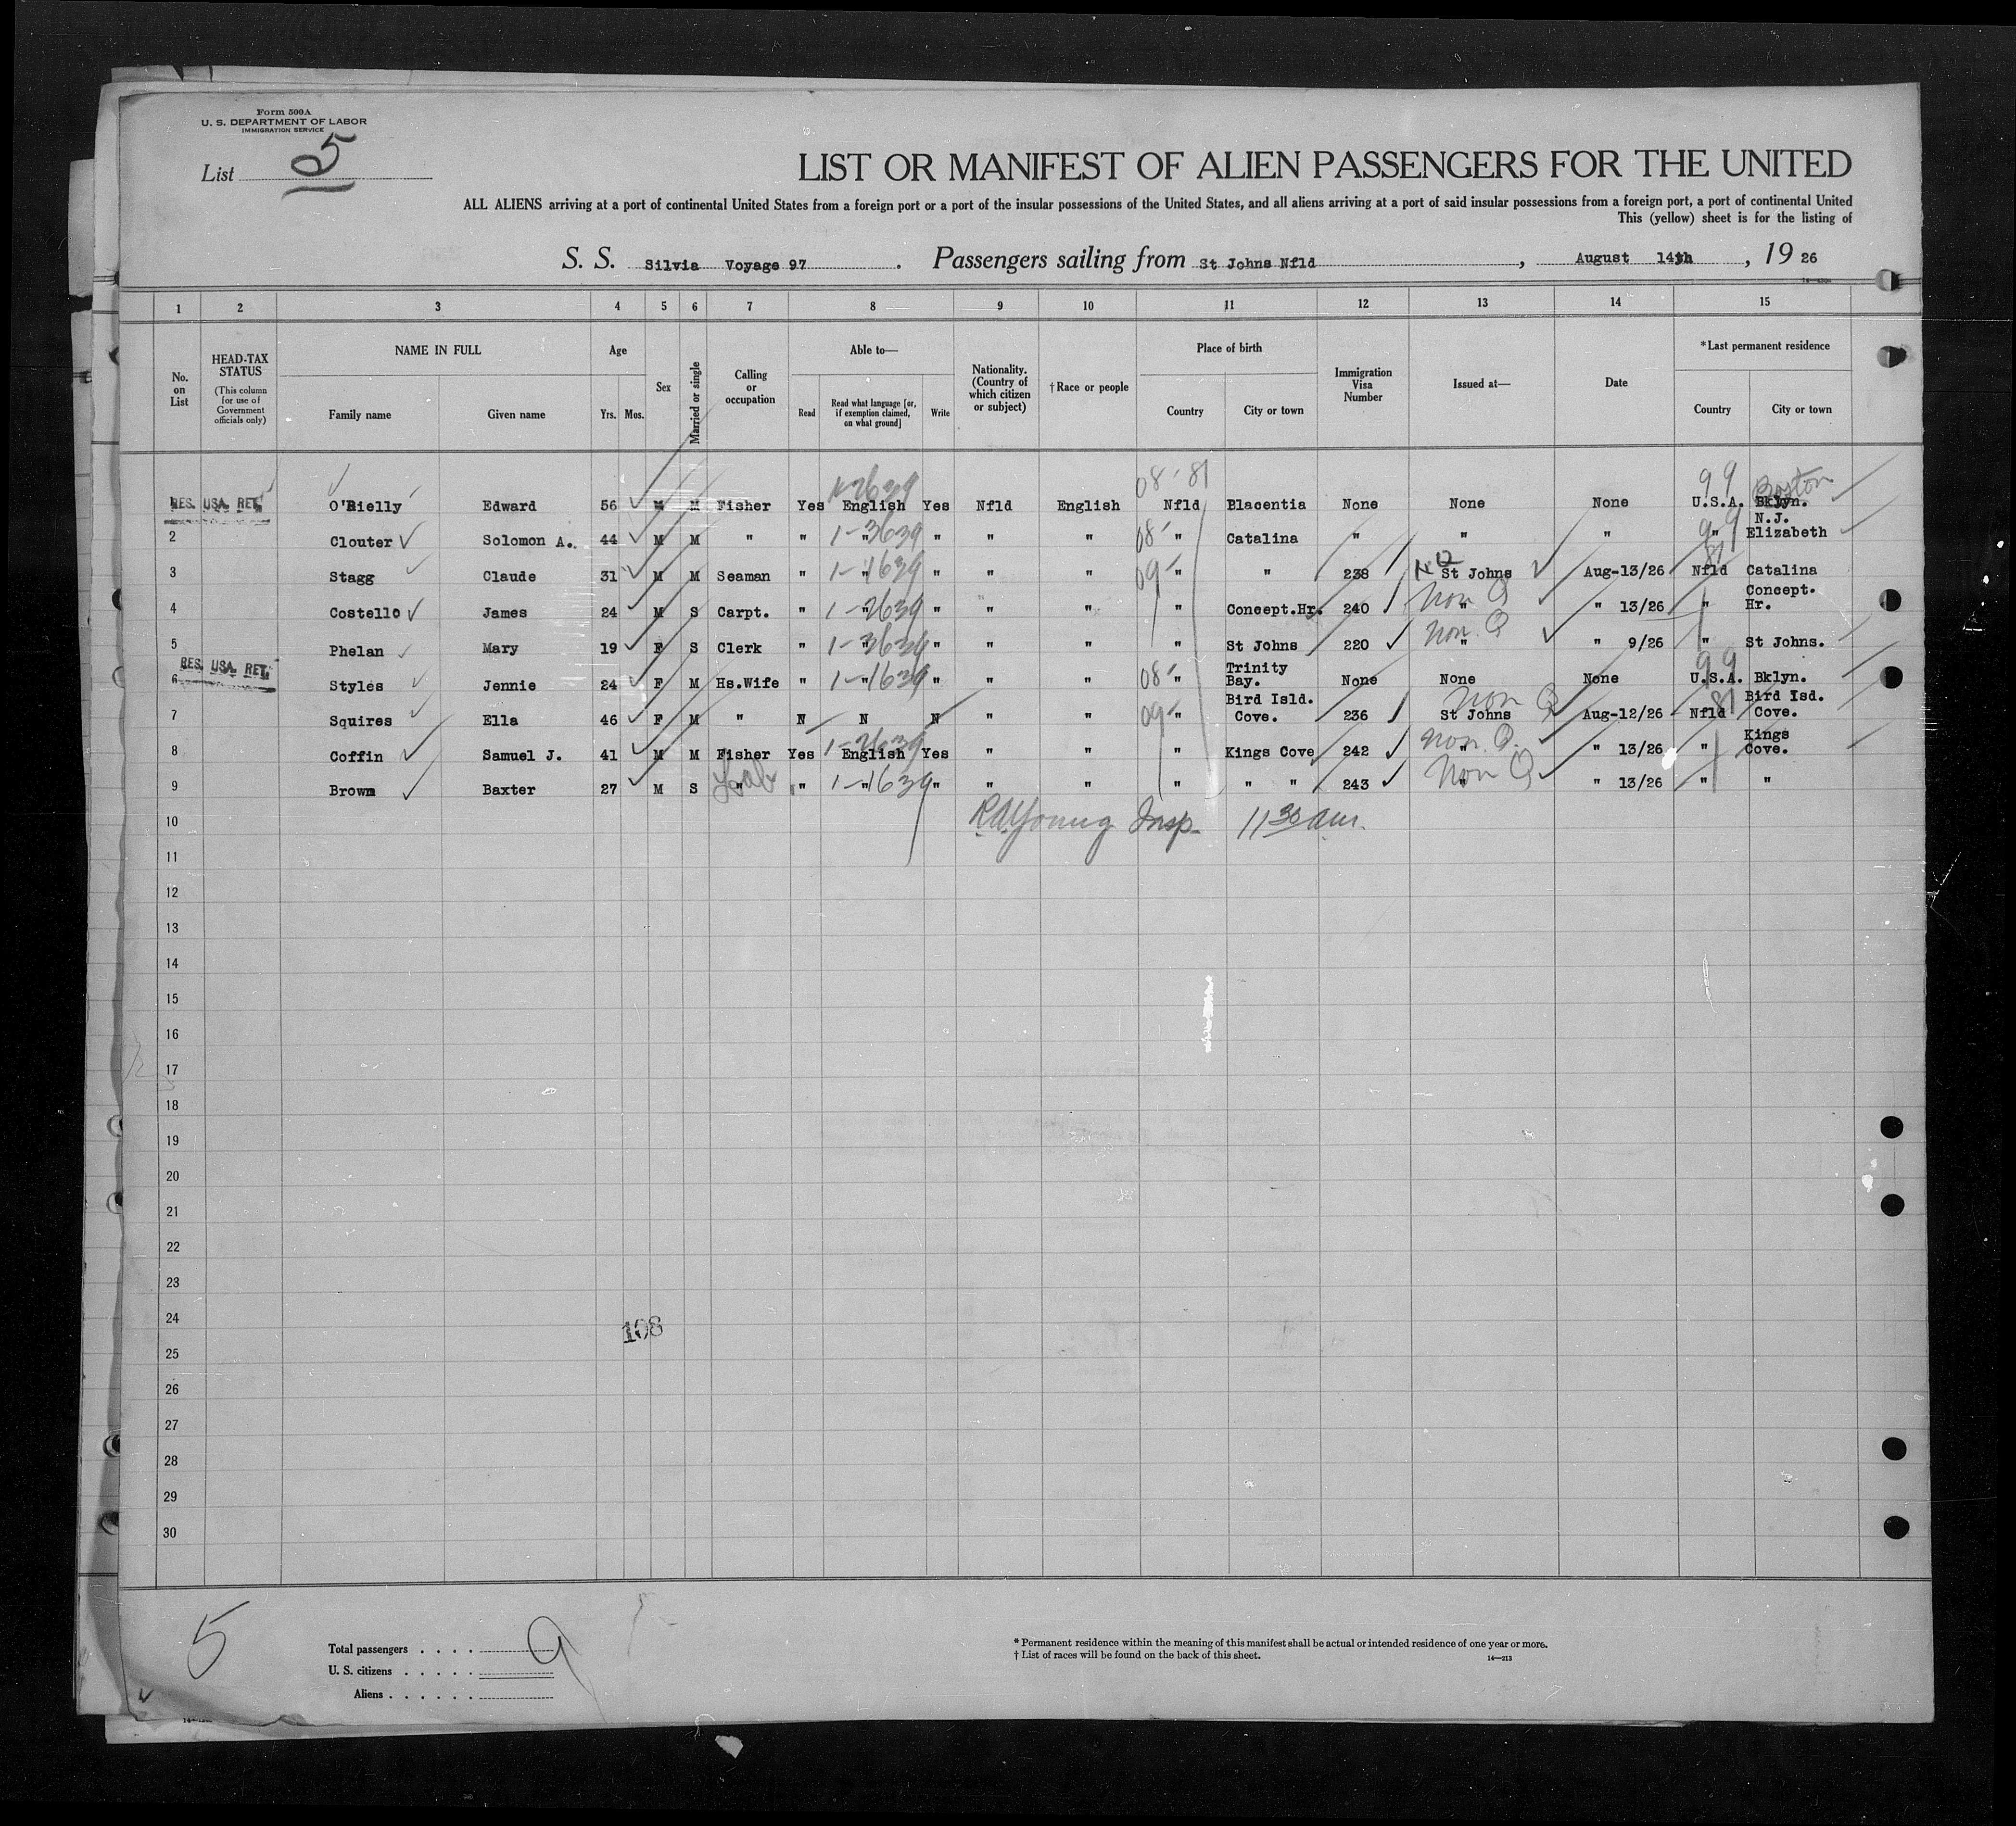 Form 500A
U. S. DEPARTMENT OF LABOR
IMMIGRATION SERVICE
List 5
LIST OR MANIFEST OF ALIEN PASSENGERS FOR THE UNITED
ALL ALIENS arriving at a port of continental United States from a foreign port or a port of the insular possessions of the United States, and all aliens arriving at a port of said insular possessions from a foreign port, a port of continental United
This (yellow) sheet is for the listing of
S. S. Silvia Voyage 97 . Passengers sailing from St Johns Nfld , August 14th , 19 26
1 2 3 4 5 6 7 8 9 10 11 12 13 14 15
No. on List
HEAD-TAX STATUS
(This column for use of Government officials only)
NAME IN FULL
Family name Given name
Age
Yrs. Mos.
Sex
Married or single
Calling or occupation
Able to—
Read
Read what language [or, if exemption claimed, on what ground]
Write
Nationality. (Country of which citizen or subject)
†Race or people
Place of birth
Country City or town
Immigration Visa Number
Issued at—
Date
*Last permanent residence
Country City or town
1-2639 08-81 99 Boston
RES. USA. RET. O'Rielly Edward 56 M M Fisher Yes English Yes Nfld English Nfld Blacentia None None None U.S.A. Bklyn.
2 Clouter Solomon A. 44 M M " " 1-3639 " " " " 08- " Catalina " " " 99 " N.J. Elizabeth
3 Stagg Claude 31 M M Seaman " 1-1639 " " " " 09- " " 238 NQ St Johns Aug-13/26 81 Nfld Catalina
4 Costello James 24 M S Carpt. " 1-2639 " " " " " Concept.Hr. 240 Non Q " " 13/26 " Concept. Hr.
5 Phelan Mary 19 F S Clerk " 1-3639 " " " " " St Johns 220 Non Q " 9/26 " St Johns.
RES. USA. RET.
6 Styles Jennie 24 F M Hs.Wife " 1-1639 " " " " 08- " Trinity Bay. None None None 99 U.S.A. Bklyn.
7 Squires Ella 46 F M " N N N " " 09- " Bird Isld. Cove. 236 Non Q St Johns Aug-12/26 81 Nfld Bird Isd. Cove.
8 Coffin Samuel J. 41 M M Fisher Yes 1-2639 English Yes " " " Kings Cove 242 Non Q. " " 13/26 " Kings Cove.
9 Brown Baxter 27 M S Lab " " 1-1639 " " " " " " " 243 Non Q " " 13/26 " "
10 RA Young Insp. 11 30 am.
11
12
13
14
15
16
17
18
19
20
21
22
23
24
108
25
26
27
28
29
30
5
Total passengers . . . . 9
U. S. citizens . . . . .
Aliens . . . . . .
* Permanent residence within the meaning of this manifest shall be actual or intended residence of one year or more.
† List of races will be found on the back of this sheet. 14—213